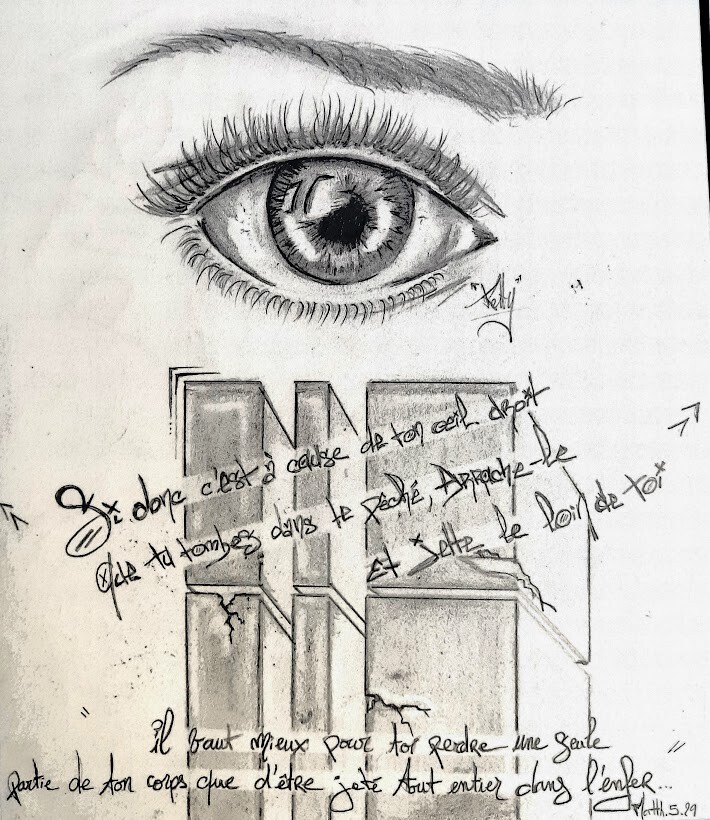 "Kelly"
Si donc c'est à cause de ton oeil droit
Que tu tombes dans le péché, Arrache-le
Et jette le loin de toi
il vaut mieux pour toi perdre une seule
partie de ton corps que d'être jeté tout entier dans l'enfer...
Matth.5.29